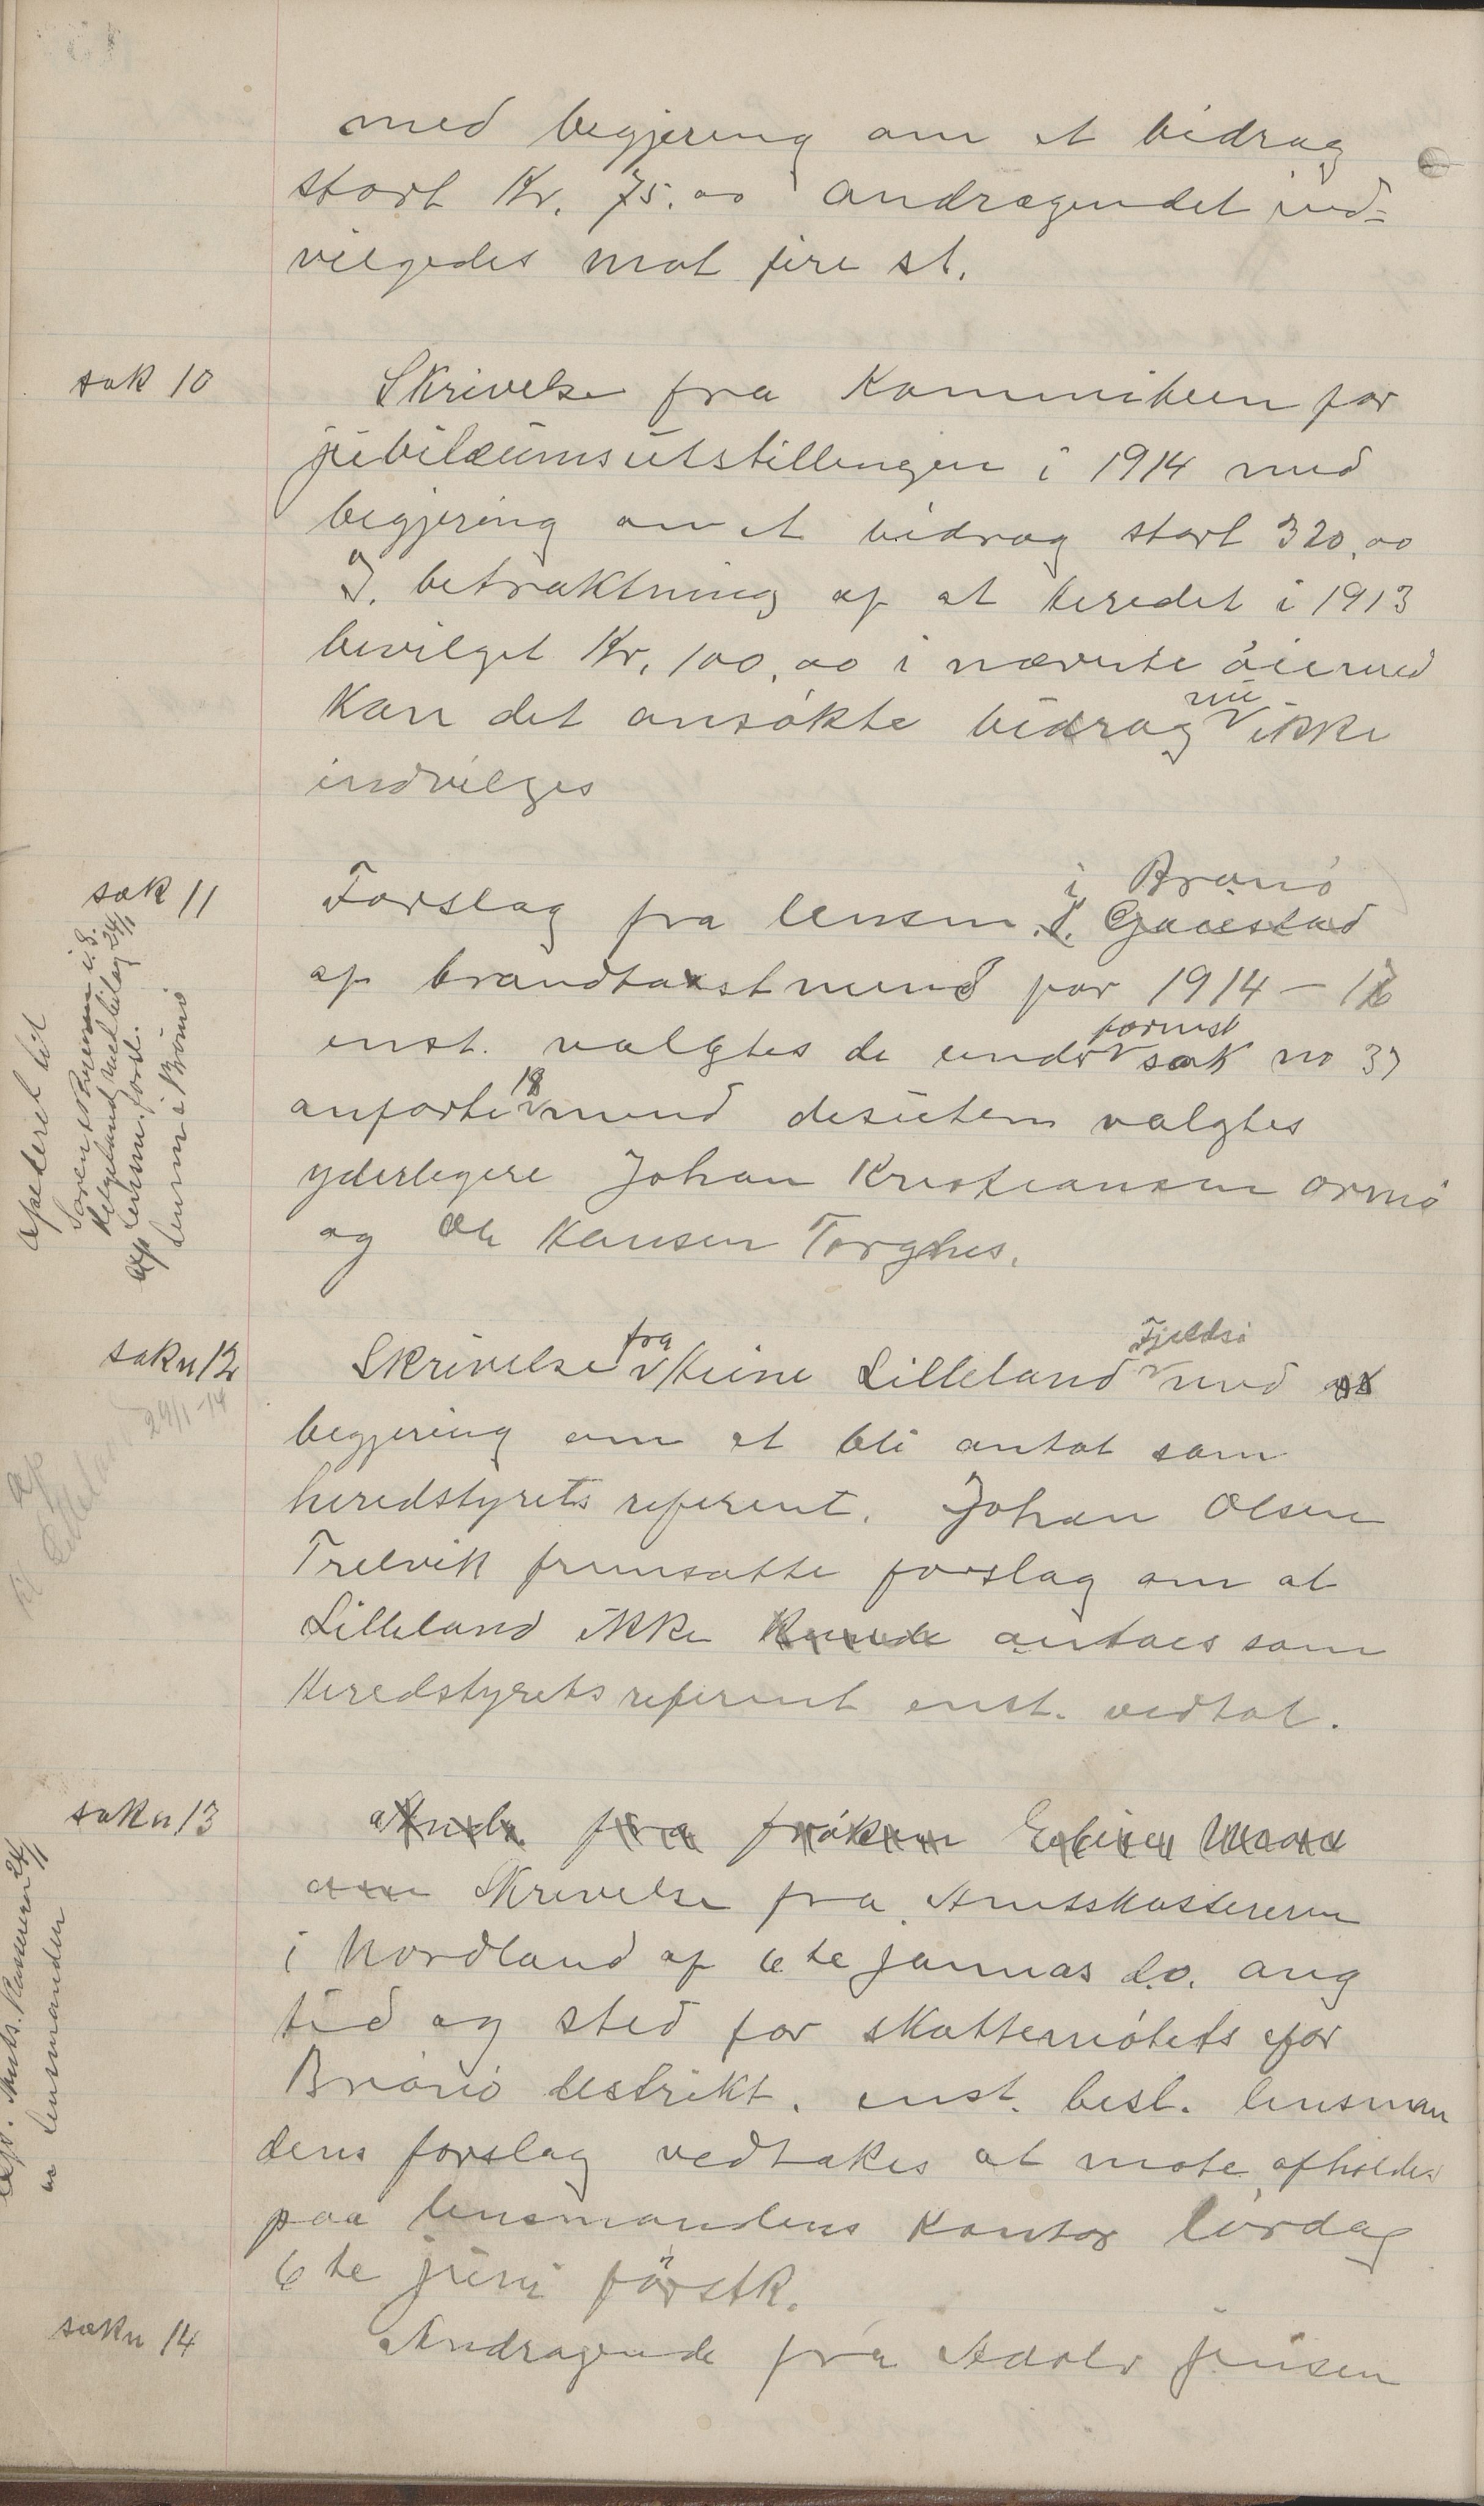 med begjæring om et bidrag
stort Kr. 75.00 andragendet ind=
vilgedes mot fire st.
sak 10
Skrivelse fra Kommiteen for
jubilæumsutstillingen i 1914 med
begjæring om et bidrag stort 320,00
I. betraktning af at heredet i 1913
bevilget Kr. 100,00 i nævnte öiemed
nu
kan det ansökte bidrag ikke
indvilges
sak 11
i Brönö
Forslag fra lensm.
af brandtakstmend for 1914 - 16
formst
enst. valgtes de under sak no 37
18
anförte mend desuten valgtes
yderligere Johan Kristiansen Ormö
og Ole Hansen Torghes.
Expederet til
Sorenskriveren i S.
Helgeland med bilag 24/1
exp lensm. forsl.
lensm i Brönö
sak n 12
fra Fjeldsö
Skrivelse Heine Lilleland med
begjæring om at bli antat som
heredstyrets referent. Johan Olsen
Trelvik fremsatte forslag om at
Lilleland ikke antaes som
Heredstyrets referent enst. vedtat.
29/1-14
Lilleland
sak n 13
Ands. fra fröken
Skrivelse fra Amtskassereren
i Nordland af 6te januar d.o. ang
tid og sted for skattemötets for
Brönö destrikt. enst. besl. lensman
dens forslag vedtakes at möte afholdes
paa lensmandens kontor lördag
6te juni förstk.
exp. Amts. Kassereren 24/1
lensmanden
sak n 14
Andragende fra Adolv Jensen